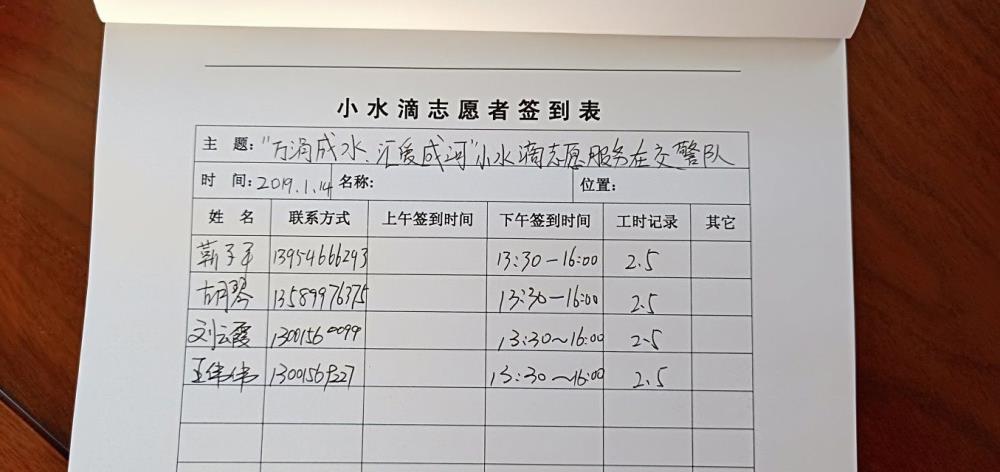 小水滴志愿者签到表
主 题: "万涓成水、汇爱成河"小水滴志愿服务在交警队
时 间: 2019.1.14 名称: 位置:
姓 名 联系方式 上午签到时间 下午签到时间 工时记录 其它
13954666293 13:30-16:00 2.5
胡琴 13589976375 13:30-16:00 2.5
刘云霞 13001560099 13:30~16:00 2.5
王伟伟 13:30~16:00 2.5